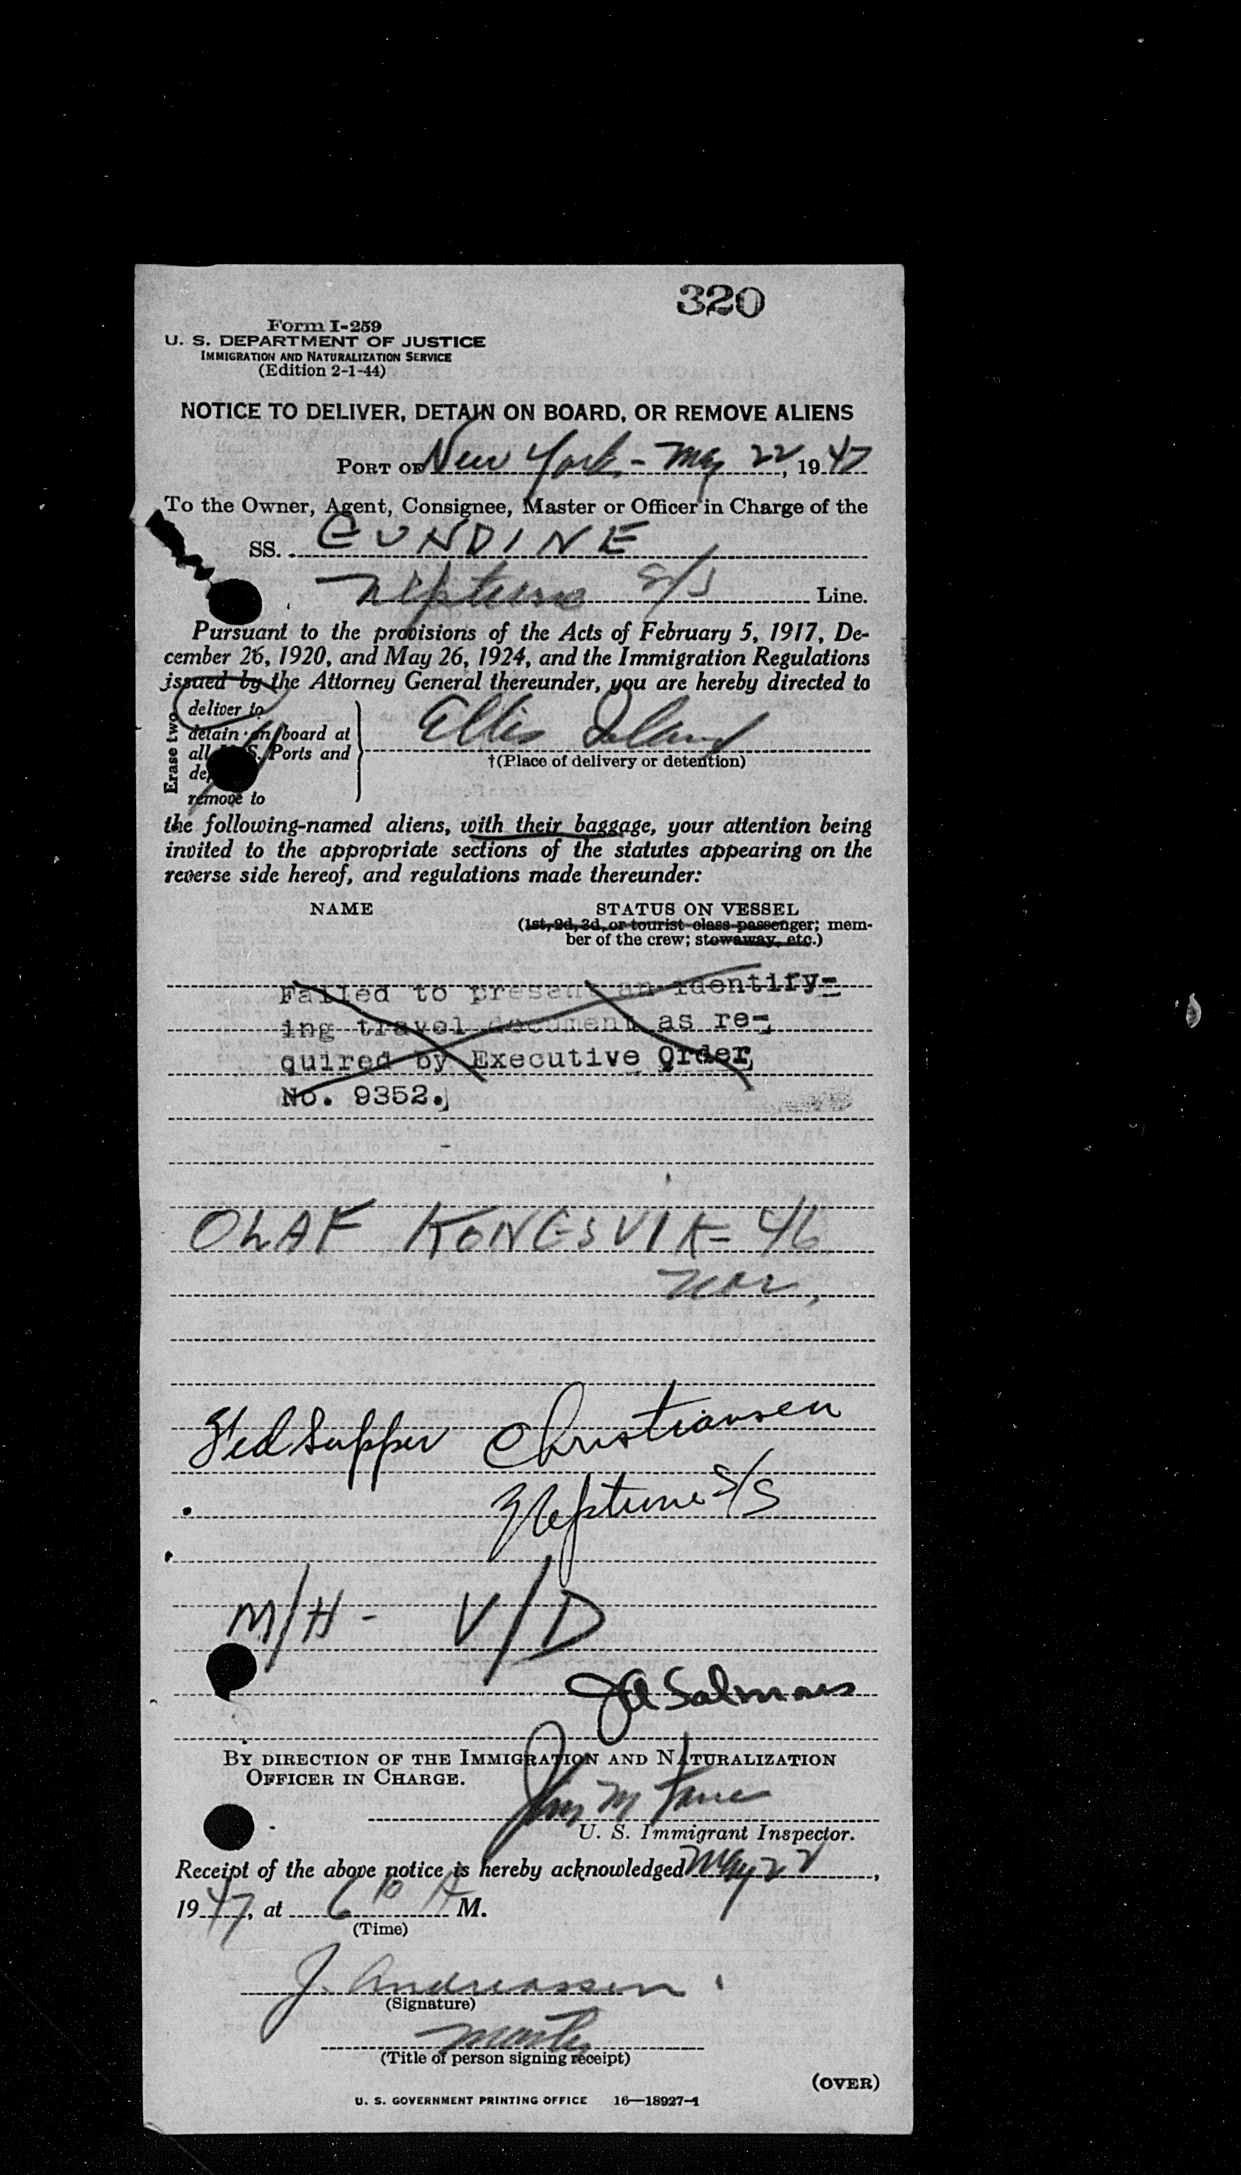 320
Form I-259
U. S. DEPARTMENT OF JUSTICE
IMMIGRATION AND NATURALIZATION SERVICE
(Edition 2-1-44)
NOTICE TO DELIVER, DETAIN ON BOARD, OR REMOVE ALIENS
PORT OF New York - May 22, 1947
To the Owner, Agent, Consignee, Master or Officer in Charge of the
SS. GUNDINE
Neptune S/S Line.
Pursuant to the provisions of the Acts of February 5, 1917, De-
cember 26, 1920, and May 26, 1924, and the Immigration Regulations
issued by the Attorney General thereunder, you are hereby directed to
Erase two
deliver to
detain on board at
all U.S. Ports and
remove to
Ellis Island
†(Place of delivery or detention)
the following-named aliens, with their baggage, your attention being
invited to the appropriate sections of the statutes appearing on the
reverse side hereof, and regulations made thereunder:
NAME STATUS ON VESSEL
(1st, 2d, 3d, or tourist class passenger; mem-
ber of the crew; stowaway, etc.)
Failed to present an identify-
ing travel document as re-
quired by Executive Order
No. 9352.
OLAF KONGSVIK - 46
Nor,
Christiansen
Neptune S/S
M/H - V/D
BY DIRECTION OF THE IMMIGRATION AND NATURALIZATION
OFFICER IN CHARGE.
U. S. Immigrant Inspector.
Receipt of the above notice is hereby acknowledged May 22,
1947, at 6 P M.
(Time)
J. Andreassen
(Signature)
Master
(Title of person signing receipt)
(OVER)
U. S. GOVERNMENT PRINTING OFFICE 16—18927-1